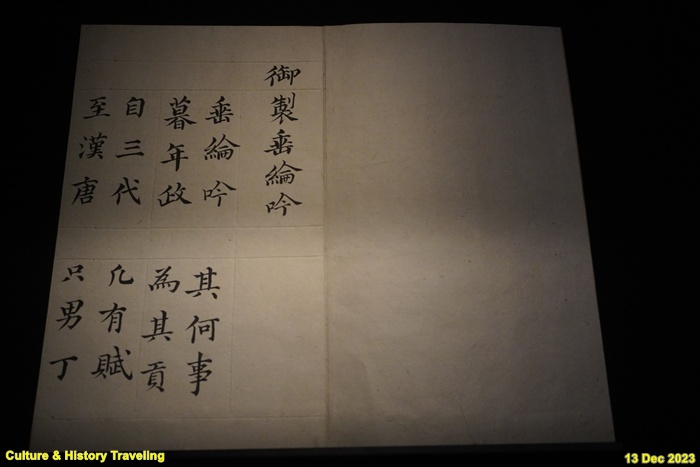 御製垂綸吟
垂綸吟 其何事
暮年政 為其貢
自三代 凡有賦
至漢唐 只男丁
Culture & History Traveling
13 Dec 2023